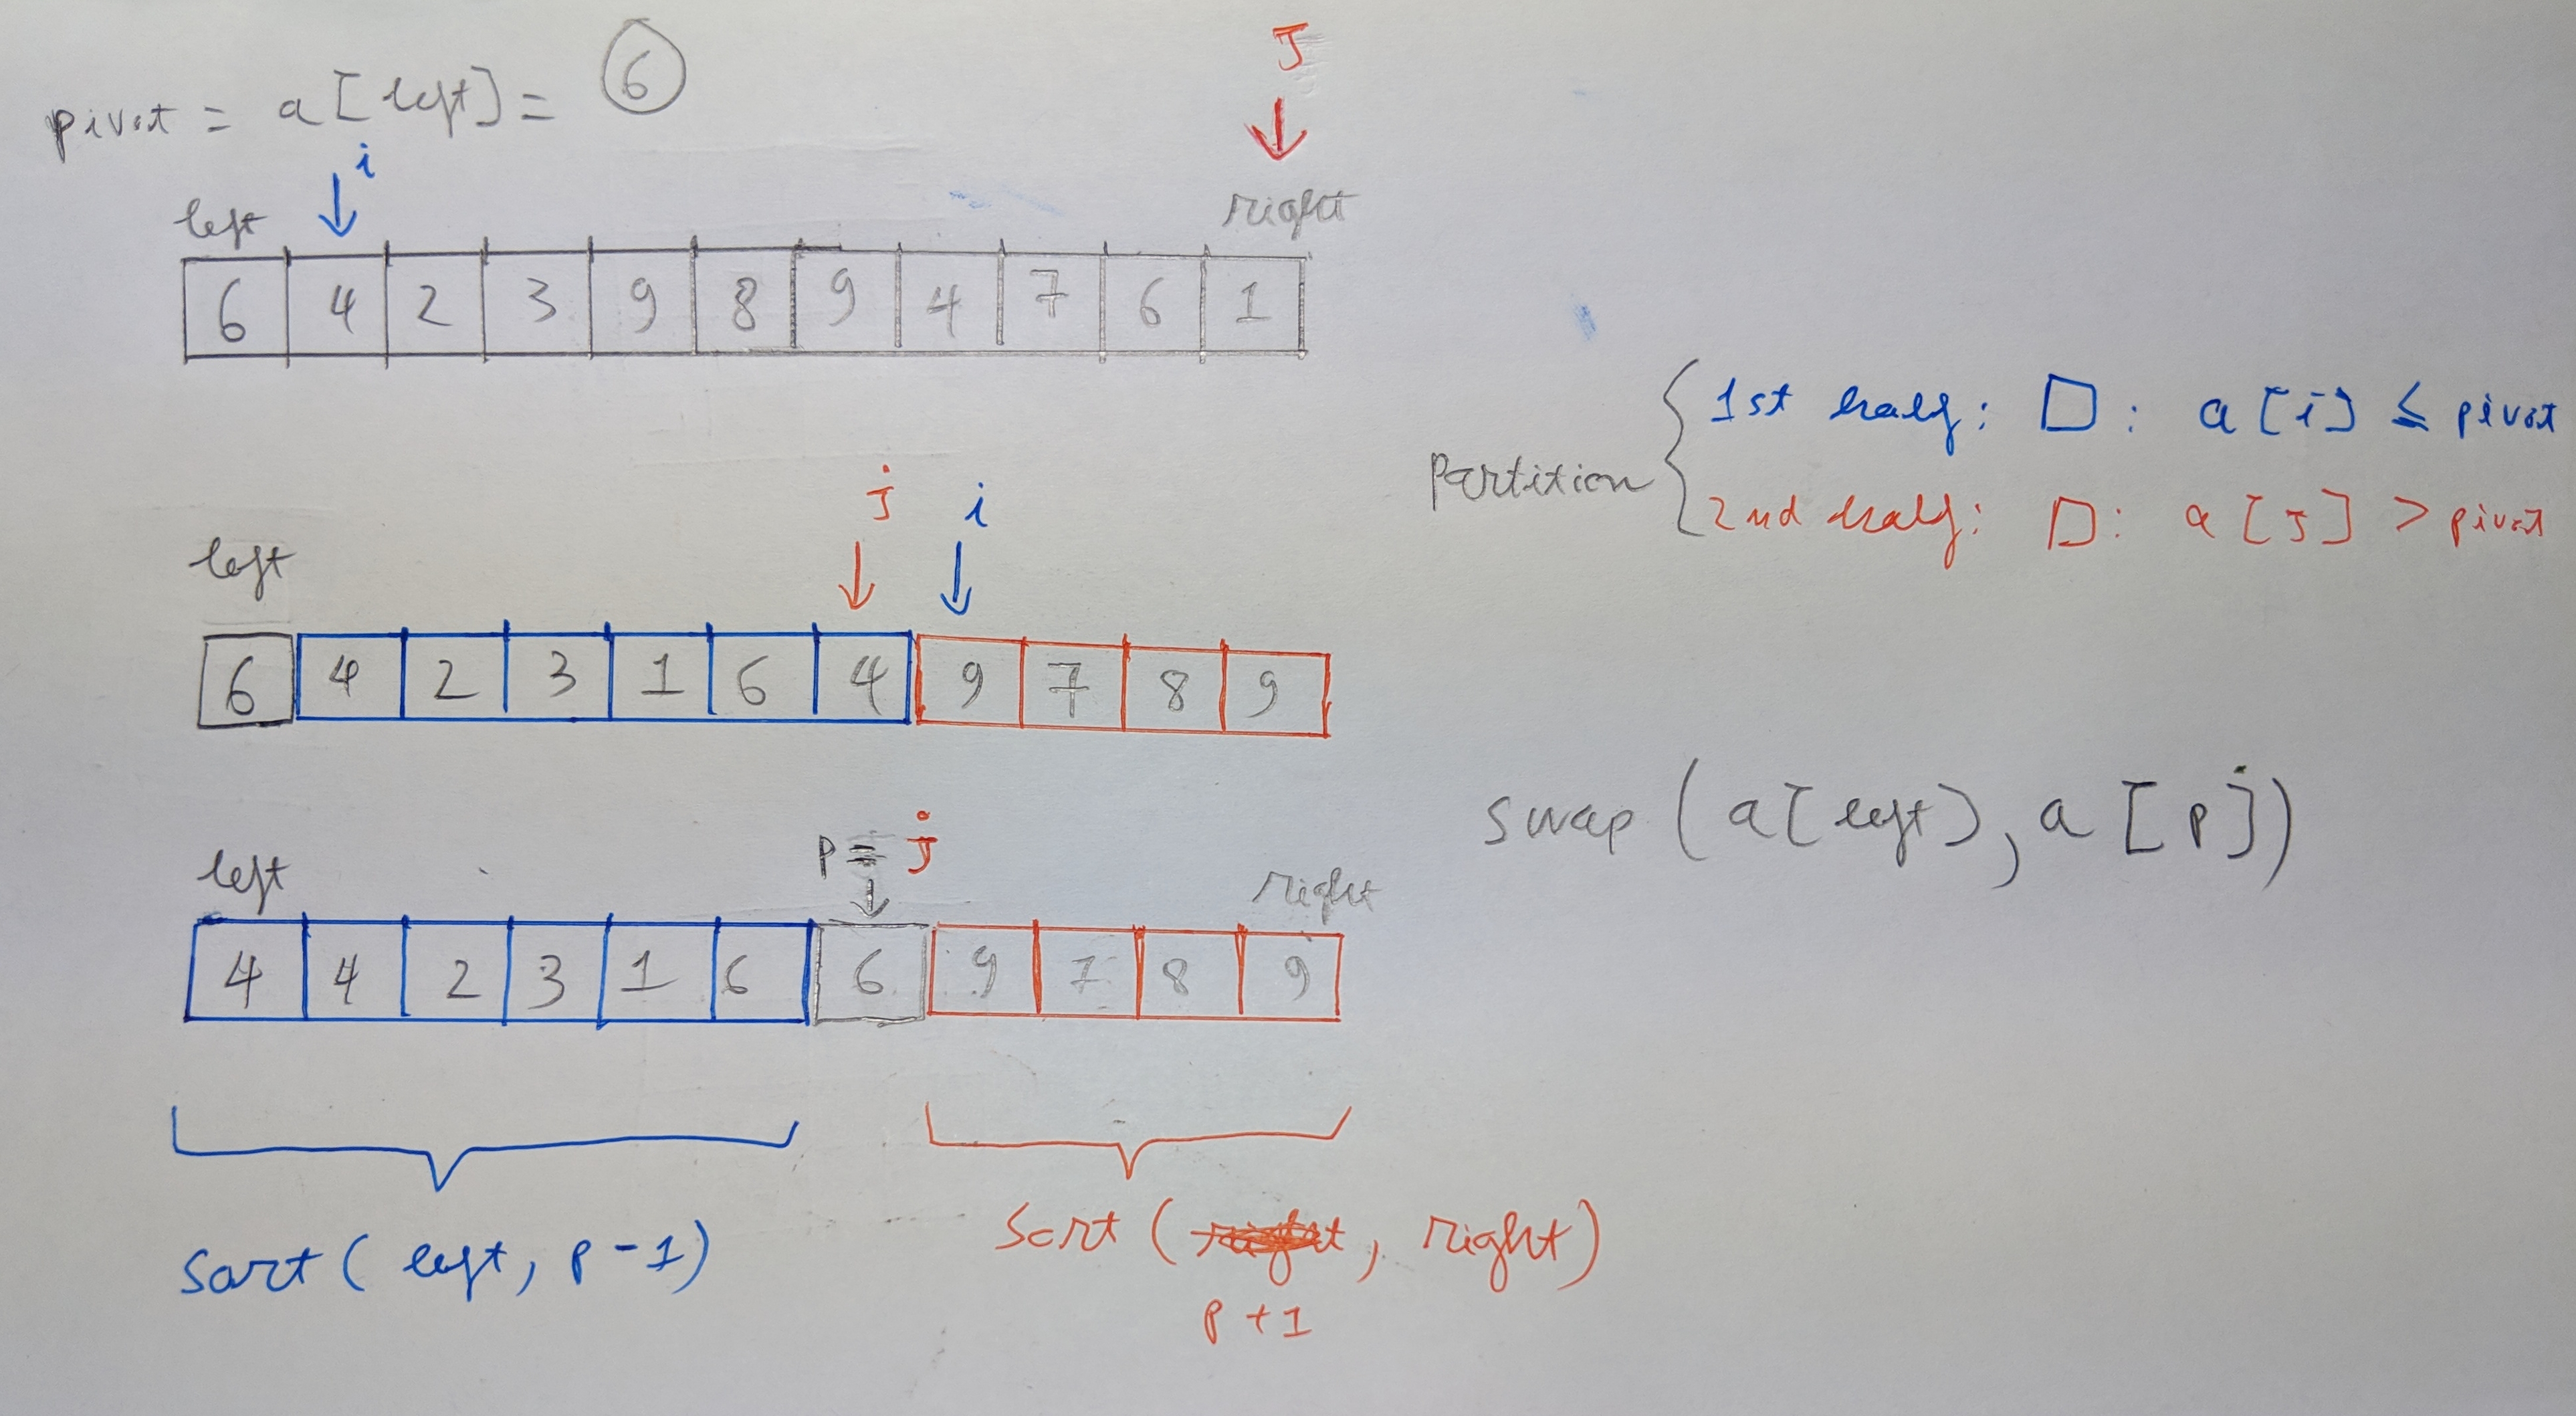 pivot = a[left] = 6
i
J
left
right
6 4 2 3 9 8 9 4 7 6 1
Partition
1st half: □: a[i] ≤ pivot
2nd half: □: a[J] > pivot
j
i
left
6 4 2 3 1 6 4 9 7 8 9
swap (a[left], a[p])
p = j
left
right
4 4 2 3 1 6 6 9 7 8 9
Sort (left, p-1)
Sort (, right)
p+1